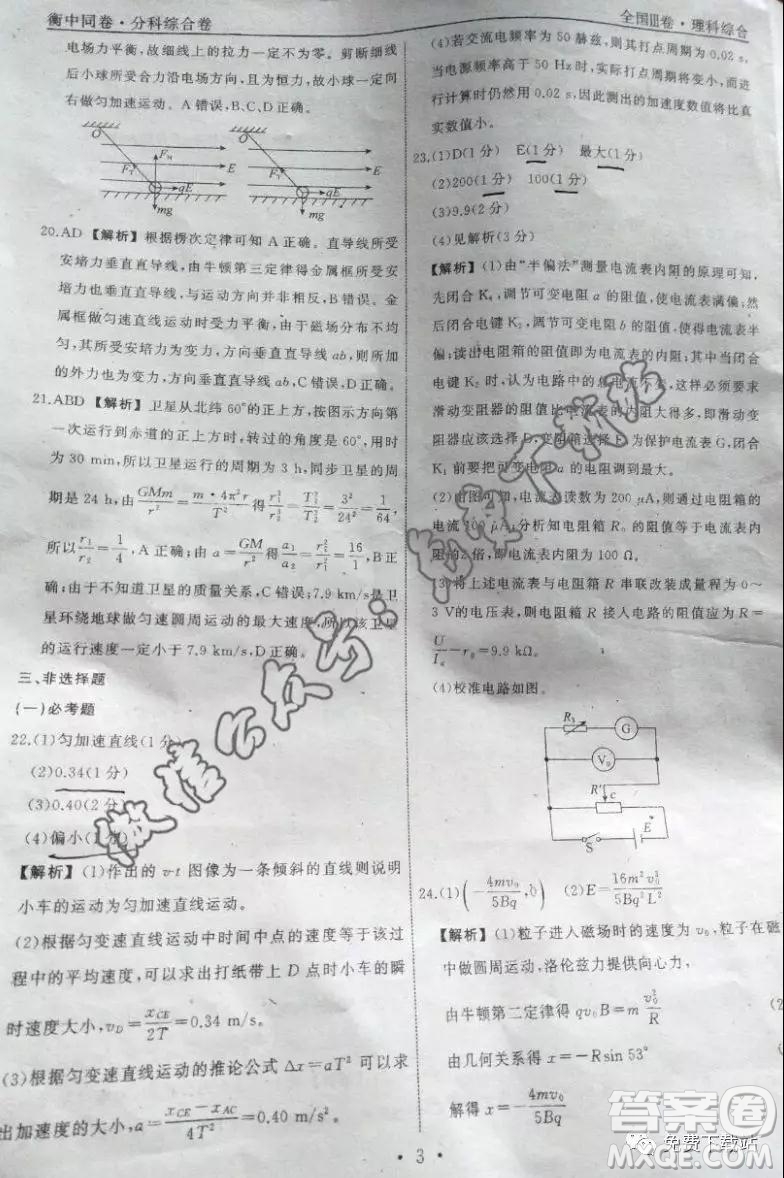 衡中同卷·分科综合卷
全国Ⅲ卷·理科综合
电场力平衡,故细线上的拉力一定不为零。剪断细线
后小球所受合力沿电场方向,且为恒力,故小球一定向
右做匀加速运动。A错误,B、C、D正确。
O
F_N
F_T
E
qE
mg
O
F_T
E
qE
mg
20.AD 【解析】根据楞次定律可知A正确。直导线所受
安培力垂直直导线,由牛顿第三定律得金属框所受安
培力也垂直直导线,与运动方向并非相反,B错误。金
属框做匀速直线运动时受力平衡,由于磁场分布不均
匀,其所受安培力不可能为零,且垂直导线ab,则所加
的外力也不为零,且垂直于直导线ab,C错误,D正确。
21.ABD 【解析】卫星从北纬60°的正上方,按图示方向第
一次运行到赤道的正上方时,转过的角度是60°,用时
为30 min,所以卫星运行的周期为3 h,同步卫星的周
期是24 h,由GMm/r²=m·4π²r/T²得r₁³/r₂³=T₁²/T₂²=3²/24²=1/64,
所以r₁/r₂=1/4,A正确;由a=GM/r²得a₁/a₂=r₂²/r₁²=16/1,B正
确;由于不知道卫星的质量关系,C错误;7.9 km/s是卫
星环绕地球做匀速圆周运动的最大速度,所以该卫星
的运行速度一定小于7.9 km/s,D正确。
三、非选择题
(一)必考题
22.(1)匀加速直线(1分)
(2)0.34(1分)
(3)0.40(2分)
(4)偏小(1分)
【解析】(1)作出的v-t图像为一条倾斜的直线则说明
小车的运动为匀加速直线运动。
(2)根据匀变速直线运动中时间中点的速度等于该过
程中的平均速度,可以求出打纸带上D点时小车的瞬
时速度大小,v_D=x_CE/2T=0.34 m/s。
(3)根据匀变速直线运动的推论公式Δx=aT²可以求
出加速度的大小,a=(x_CE-x_AC)/4T²=0.40 m/s。
(4)若交流电频率为50赫兹,则其打点周期为0.02 s,
当电源频率高于50 Hz时,实际打点周期将变小,而进
行计算时仍然用0.02 s,因此测出的加速度数值将比真
实数值小。
23.(1)D(1分) E(1分) 最大(1分)
(2)200(1分) 100(1分)
(3)9.9(2分)
(4)见解析(3分)
【解析】(1)由“半偏法”测量电流表内阻的原理可知,
先闭合K₁,调节可变电阻a的阻值,使电流表满偏;然
后闭合电键K₂,调节可变电阻b的阻值,使得电流表半
偏;读出电阻箱的阻值即为电流表的内阻;由于闭合
电键K₂时,认为电路中的总电流不变,因此要求
滑动变阻器的阻值比电流表的内阻大得多,即滑动变
阻器应该选择D,电阻箱选择E;为保护电流表,闭合
K₁前要把可变电阻a的电阻调到最大。
(2)由图可知,电流表读数为200 μA,则通过电阻箱的
电流100 μA;分析知电阻箱R₀的阻值等于电流表内
阻的2倍,即电流表内阻为100 Ω。
(3)将上述电流表与电阻箱R串联改装成量程为0~
3 V的电压表,则电阻箱R接入电路的阻值应为R=
U/I_g-r₀=9.9 kΩ。
(4)校准电路如图。
R₁
G
V₀
R′
c
E
S
24.(1)(-4mv₀/5Bq,0) (2)E=16m²v₀³/5Bq²L²
【解析】(1)粒子进入磁场时的速度为v₀,粒子在磁场
中做圆周运动,洛伦兹力提供向心力,
由牛顿第二定律得qv₀B=mv₀²/R
由几何关系得x=-Rsin 53°
解得x=-4mv₀/5Bq
·3·
答案圈
免费下载站